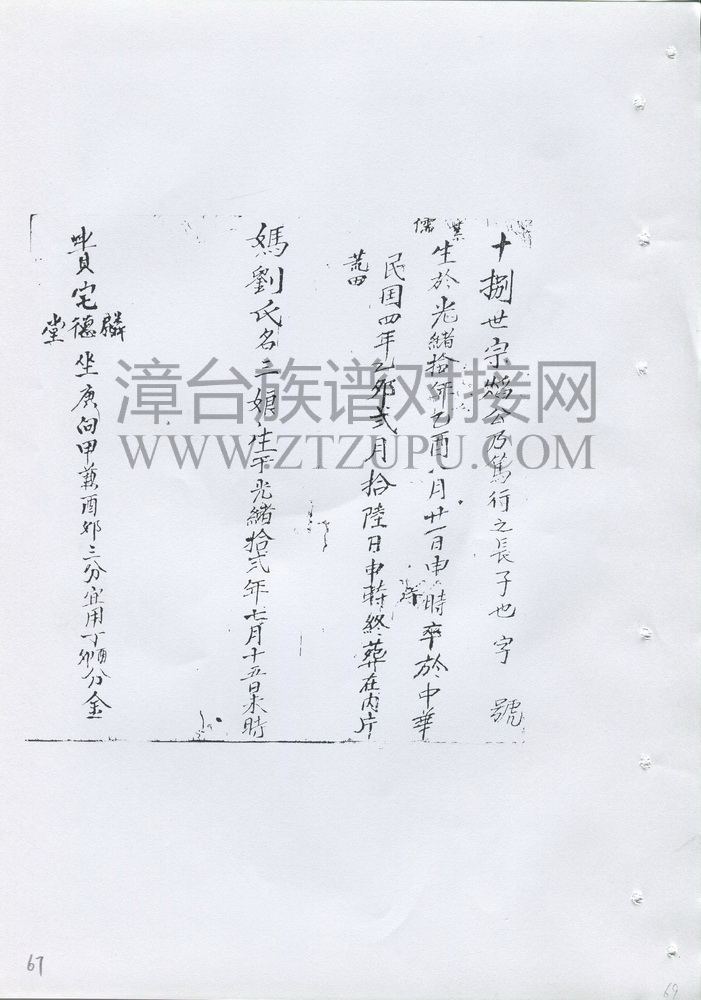 十捌世宗公乃篤行之長子也字 號
業儒
生於光緒拾年乙酉八月廿一日申時卒於中華
民国四年乙卯弍月拾陸日申時終葬在内片
荒田
媽劉氏名二娘生于光緒拾弍年七月十五日未時
貴宅德坐庚向甲兼酉卯三分宜用丁酉卯分金
麟堂
漳台族谱对接网
WWW.ZTZUPU.COM
67
69